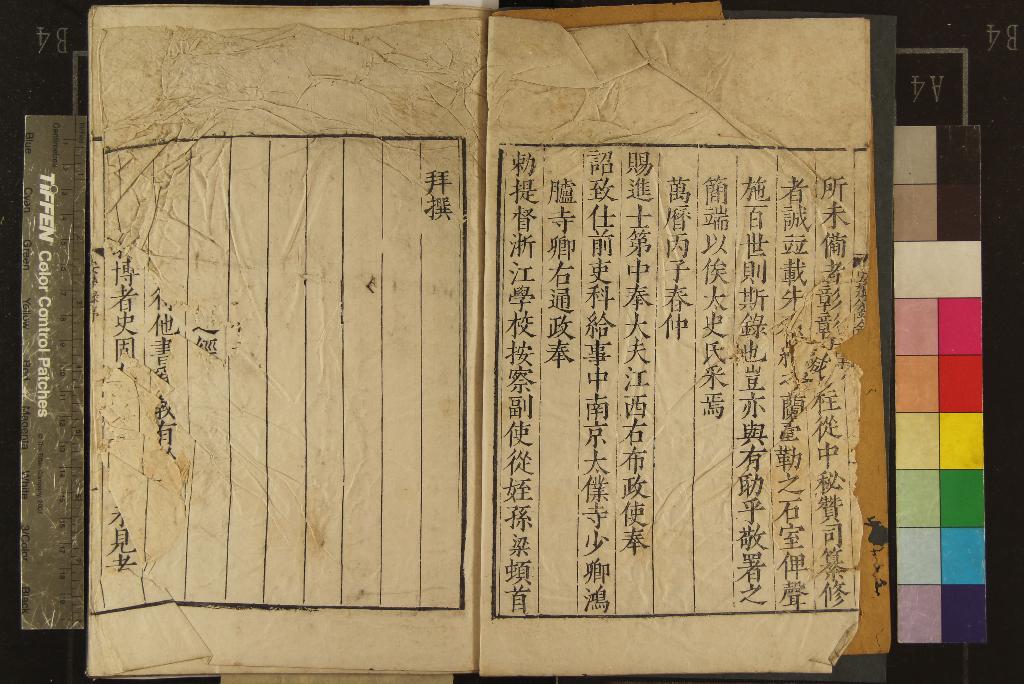 所未備者彰往從中秘贊司纂修
者誠竝載蘭臺勒之石室俾聲
施百世則斯錄也豈亦與有助乎敬署之
簡端以俟太史氏釆焉
萬曆丙子春仲
賜進士第中奉大夫江西右布政使奉
詔致仕前吏科給事中南京太僕寺少卿鴻
臚寺卿右通政奉
勑提督浙江學校按察副使從姪孫梁頓首
拜撰
他書
博者史固
見者
B4
A4
B4
TIFFEN Color Control Patches
Blue
Cyan
Green
Yellow
Red
Magenta
White
3/Color
Black